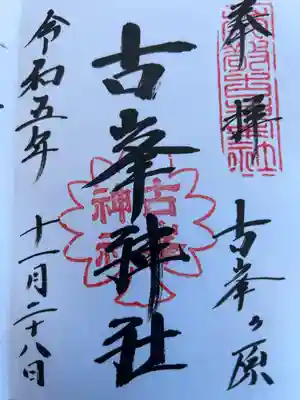 奉拝
古峯ヶ原
古峯神社
令和五年
十一月二十八日